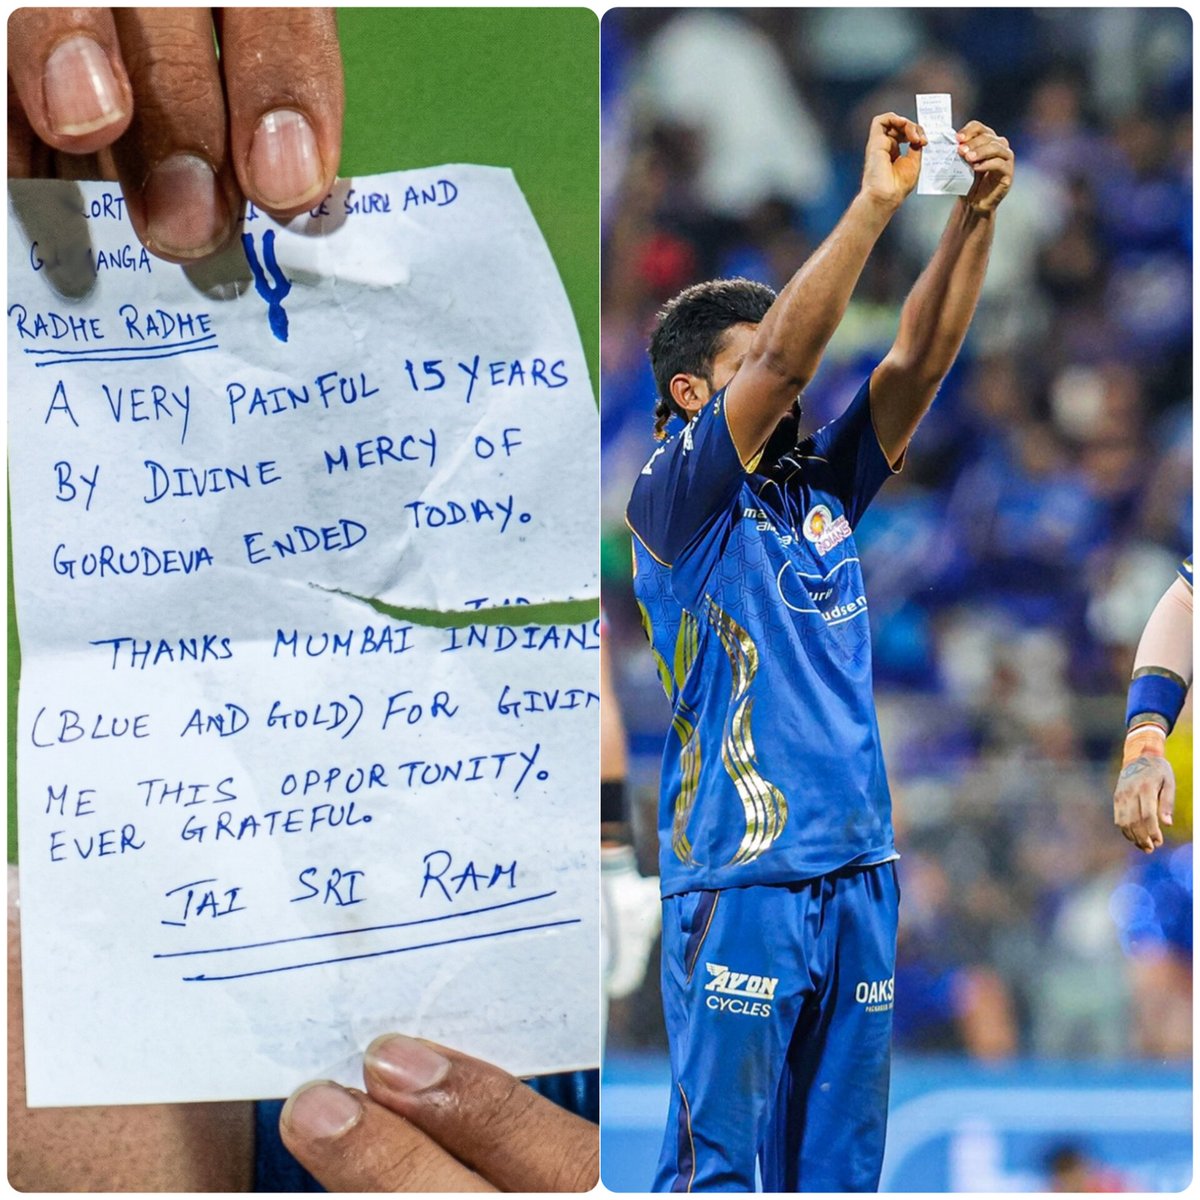 AND
RADHE RADHE
A VERY PAINFUL 15 YEARS
BY DIVINE MERCY OF
GORUDEVA ENDED TODAY.
THANKS MUMBAI INDIANS
(BLUE AND GOLD) FOR GIVIN
ME THIS OPPORTUNITY.
EVER GRATEFUL.
JAI SRI RAM
INDIANS
AVON
CYCLES
OAKS